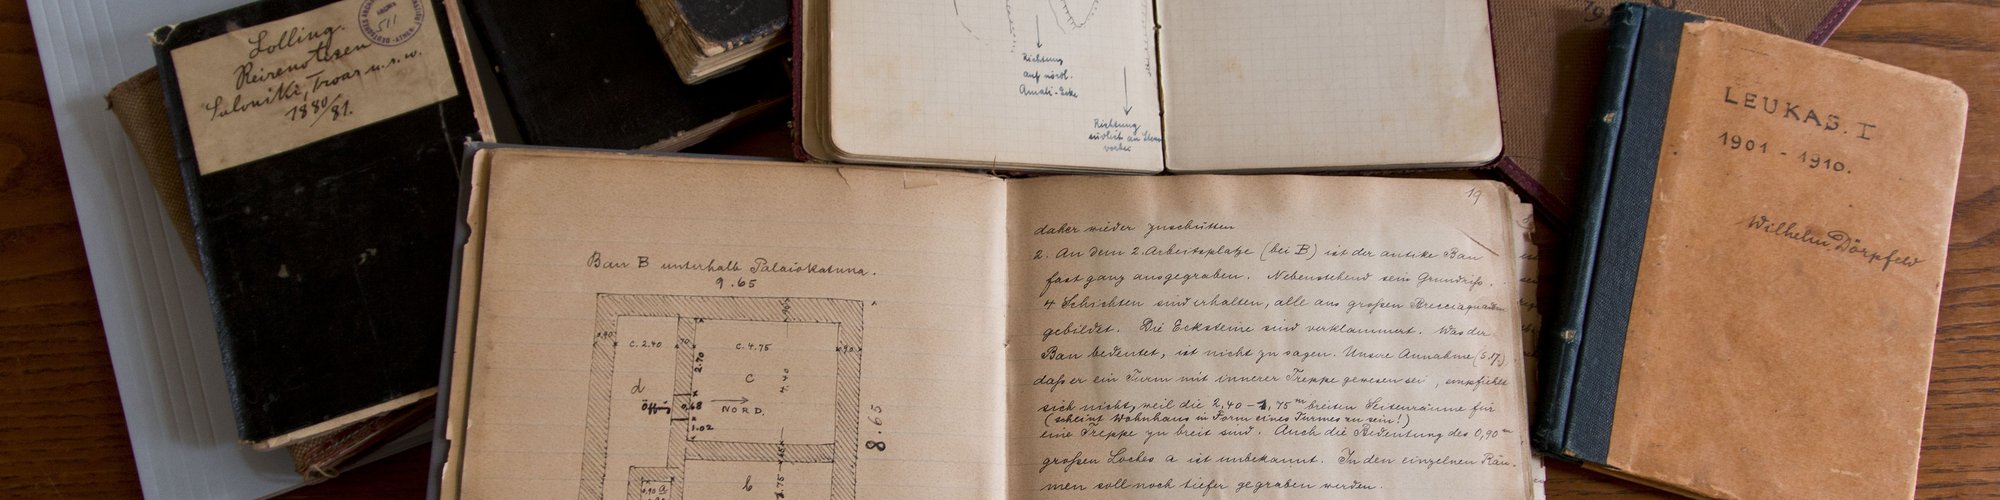 Lolling.
Reisenotizen
Saloniki, Troas u.s.w.
1880/81.
511
Richtung
auf nördl.
Amali-Ecke
Richtung
vorbei
LEUKAS. I
1901 - 1910.
Wilhelm Dörpfeld
Bau B unterhalb Palaiokatuna.
9.65
90
c. 2.40
70
c. 4.75
90
2.70
4.40
d
c
Öffng
0.68
NORD.
1.02
8.65
b
0.90 a
19
daher wieder zuschütten
2. An dem 2. Arbeitsplatze (bei B) ist der antike Bau
fast ganz ausgegraben. Nebenstehend sein Grundriß.
4 Schichten sind erhalten, alle aus großen Brecciaquadern
gebildet. Die Ecksteine sind verklammert. Was der
Bau bedeutet, ist nicht zu sagen. Unsre Annahme (S. 17)
daß er ein Turm mit innerer Treppe gewesen sei, empfiehlt
sich nicht, weil die 2,40 - 1,75 m breiten Seitenräume für
(scheint Wohnhaus in Form eines Turmes zu sein!)
eine Treppe zu breit sind. Auch die Bedeutung des 0,90 m
großen Loches a ist unbekannt. In den einzelnen Räu-
men soll noch tiefer gegraben werden.